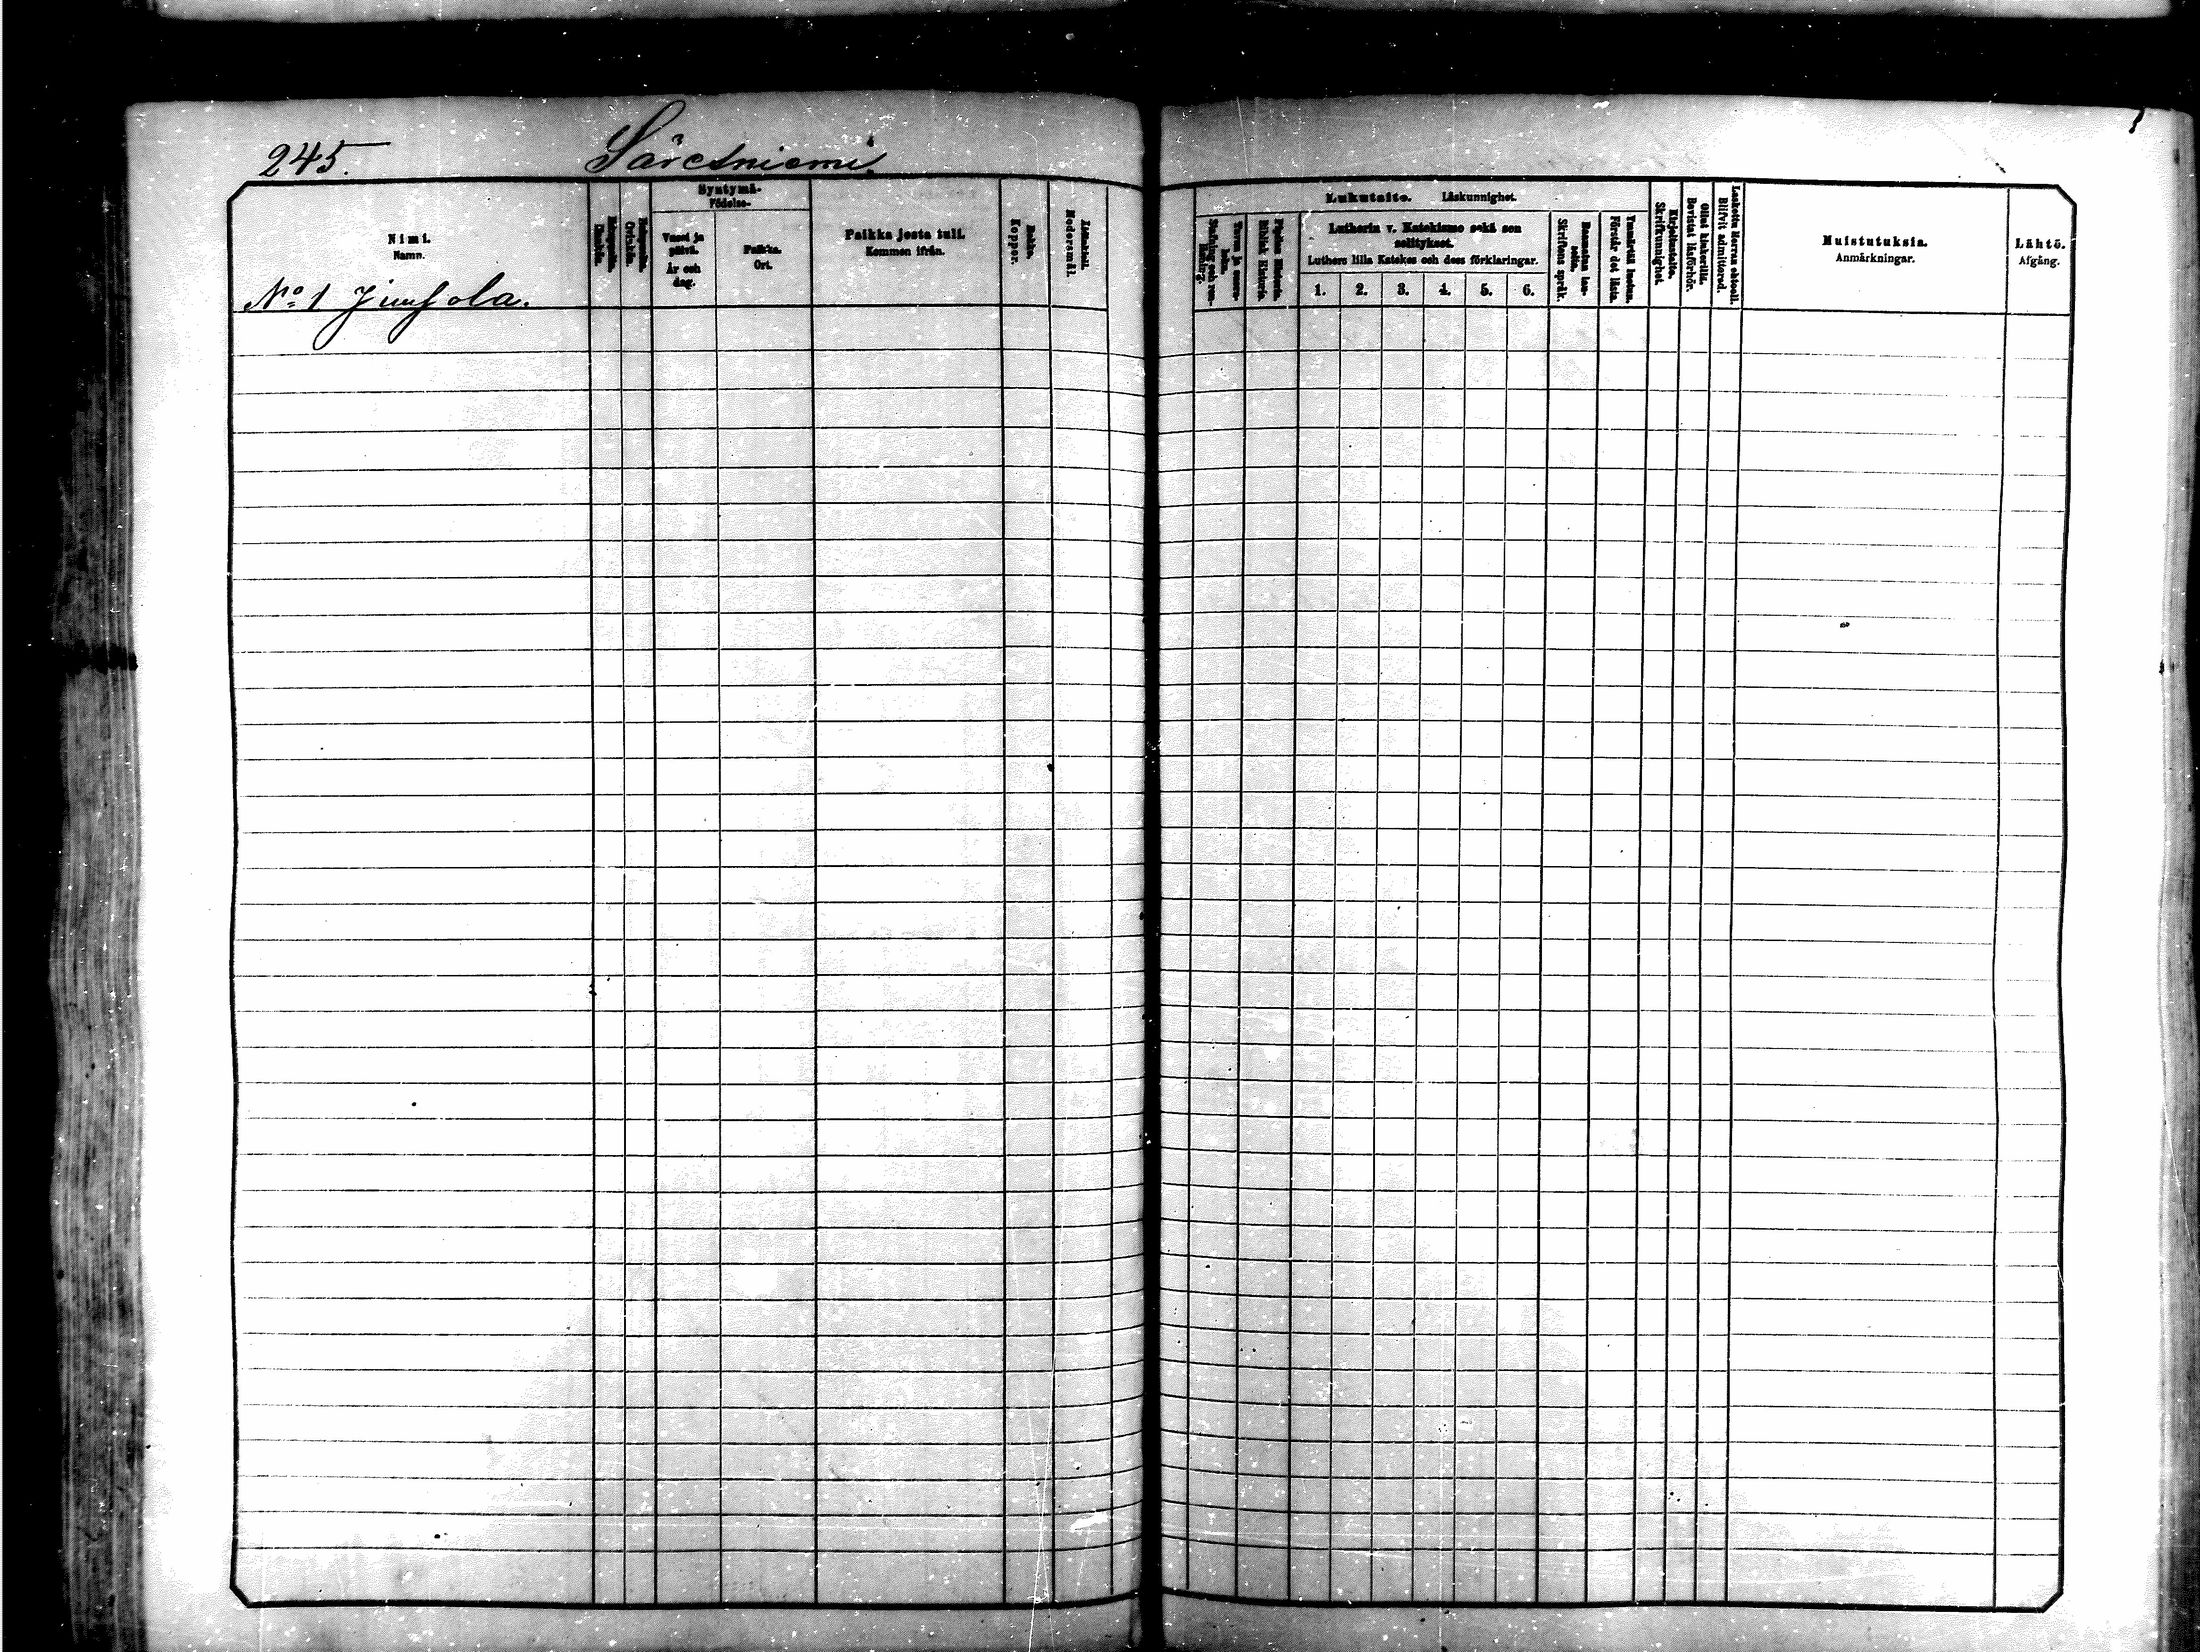 245.
Säresniemi.
Nimi.
Namn.
Rokko.
Koppor.
Syntymä-
Födelse-
Vuosi ja
päivä.
År och
dag.
Paikka.
Ort.
Paikka josta tuli.
Kommen ifrån.
Modersmål.
Lukutaito. Läskunnighet.
Lutherin v. Katekismo sekä sen
selitykset.
Luthers lilla Katekes och dess förklaringar.
1. 2. 3. 4. 5. 6.
Skriftens språk.
Förstår det lästa.
Kirjoitustaito.
Skrifkunnighet
Ollut kinkerillä.
Bevistat läsförhör.
Laskettu Herran ehtool.
Blifvit admitterad.
Muistutuksia.
Anmärkningar.
Lähtö.
Afgång.
No 1